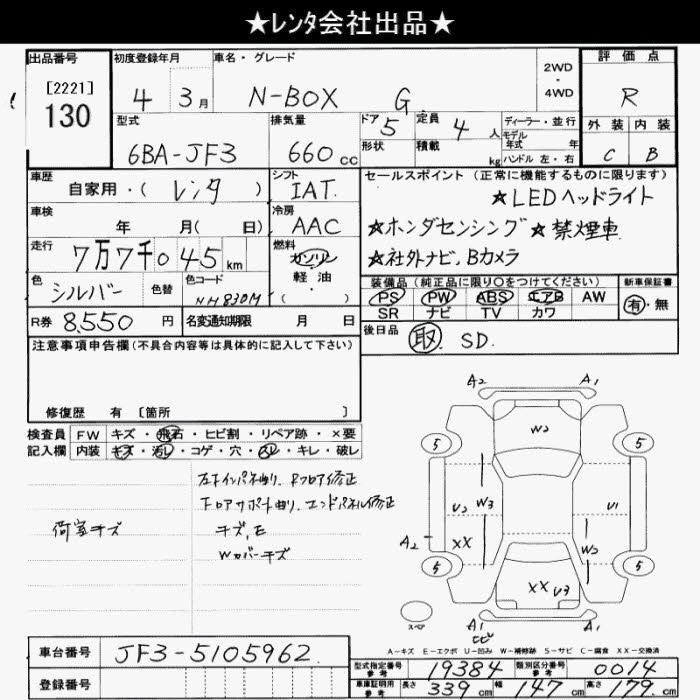 ★レンタ会社出品★
出品番号
[2221]
130
初度登録年月
4 3月
車名・グレード
N-BOX G
2WD
・
4WD
評価点
R
外装 内装
C B
型式
6BA-JF3
排気量
660 cc
ドア 5
形状
定員 4 人
積載 kg
ディーラー・並行
モデル年式 年
ハンドル 左・右
車歴
自家用・(レンタ)
シフト
IAT
セールスポイント (正常に機能するものに限ります)
★LEDヘッドライト
★ホンダセンシング★禁煙車
★社外ナビ、Bカメラ
車検
年 月( 日)
冷房
AAC
走行
7万7千045km
燃料
ガソリン
軽・油
( ・ )
色
シルバー
色替
色コード
NH830M
装備品 (純正品に限り○をつけてください)
PS PW ABS エアB AW
SR ナビ TV カワ
新車保証書
有・無
R券 8,550 円
名変通知期限 月 日
後日品
取 SD.
注意事項申告欄(不具合内容等は具体的に記入して下さい)
修復歴 有 [箇所 ]
検査員
記入欄
FW キズ・飛石・ヒビ割・リペア跡・×要
内装 キズ・汚レ・コゲ・穴・スレ・キレ・破レ
左下インパネ曲り、Rフロア修正
下ロアサポート曲り、エンドパネル修正
荷室キズ
キズ,E
Wカバーキズ
A2 A1
W2
5 5
U2 W3 U1
A2 XX W2
5 5
XX U3
スペア
A1 A1
ヒビ
A-キズ E-エクボ U-凹み W-補修跡 S-サビ C-腐食 XX-交換済
車台番号 JF3-5105962
登録番号
型式指定番号 参考 19384
類別区分番号 参考 0014
車庫証明用 参考 長さ 339cm 幅 147cm 高さ 179cm